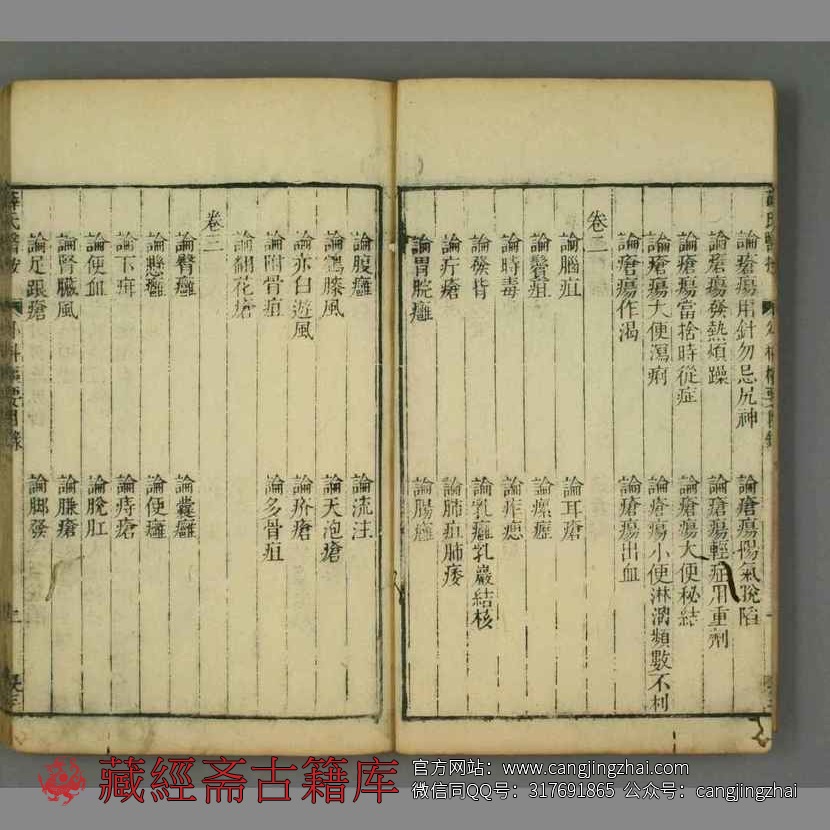 論瘡瘍用針勿忌尻神 論瘡瘍陽氣脫陷
論瘡瘍發熱煩躁 論瘡瘍輕症用重劑
論瘡瘍當捨時從症 論瘡瘍大便秘結
論瘡瘍大便瀉痢 論瘡瘍小便淋漓頻數不利
論瘡瘍作渴 論瘡瘍出血
卷二
論腦疽 論耳瘡
論鬢疽 論瘰癧
論時毒 論痄腮
論發背 論乳癰乳巖結核
論疔瘡 論肺疽肺痿
論胃脘癰 論腸癰
論腹癰 論流注
論鶴膝風 論天泡瘡
論赤白遊風 論疥瘡
論附骨疽 論多骨疽
論翻花瘡
卷三
論臀癰 論囊癰
論懸癰 論便癰
論下疳 論痔瘡
論便血 論脫肛
論腎臟風 論臁瘡
論足跟瘡 論脚發
薛氏醫按 外科樞要目錄
藏經斋古籍库
官方网站：www.cangjingzhai.com
微信同QQ号：317691865 公众号：cangjingzhai